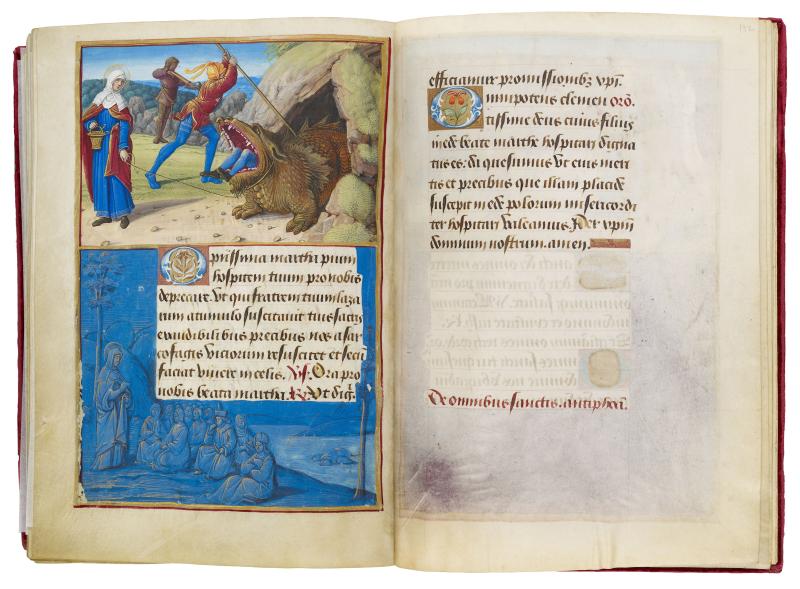 O piissima martha pium
hospitem tuum pro nobis
deprecare. Ut qui fratrem tuum laza
rum a tumulo suscitavit tuis sacris
exaudibilibus precibus nos a sar
cofagis viciorum resuscitet et secū
faciat vivere in celis. Vs. Ora pro
nobis beata martha. R. Ut dig̃.
192
efficiamur promissionibꝫ xp̄i.
Omnipotens clemen orõ.
tissime deus cuius filius
in ede beate marthe hospitari digna
tus es: da quesumus Ut eius meri
tis et precibus que illam placide
suscepit in ede polorum misericordi
ter hospitari valeamus. Per xp̄m
dominum nostrum. amen.
De omnibus sanctis. antiphona.